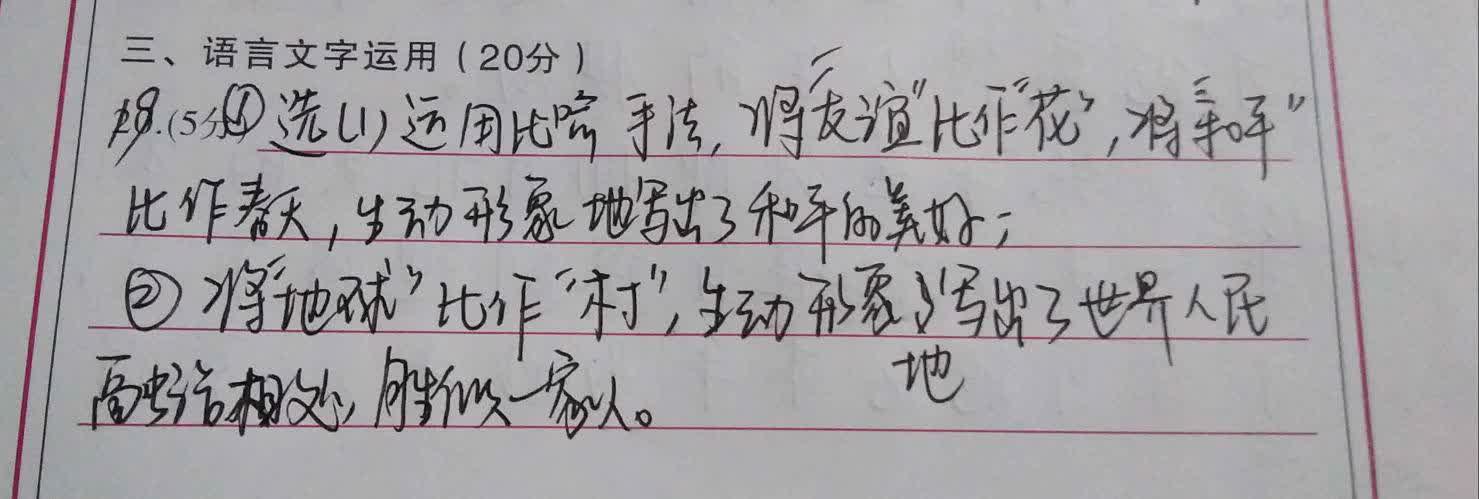 三、语言文字运用（20分）
18.(5分)①选(1)运用比喻手法,将"友谊"比作"花",将"和平"
比作春天,生动形象地写出了和平的美好;
②将"地球"比作"村",生动形象地写出了世界人民
融洽相处,胜似一家人。